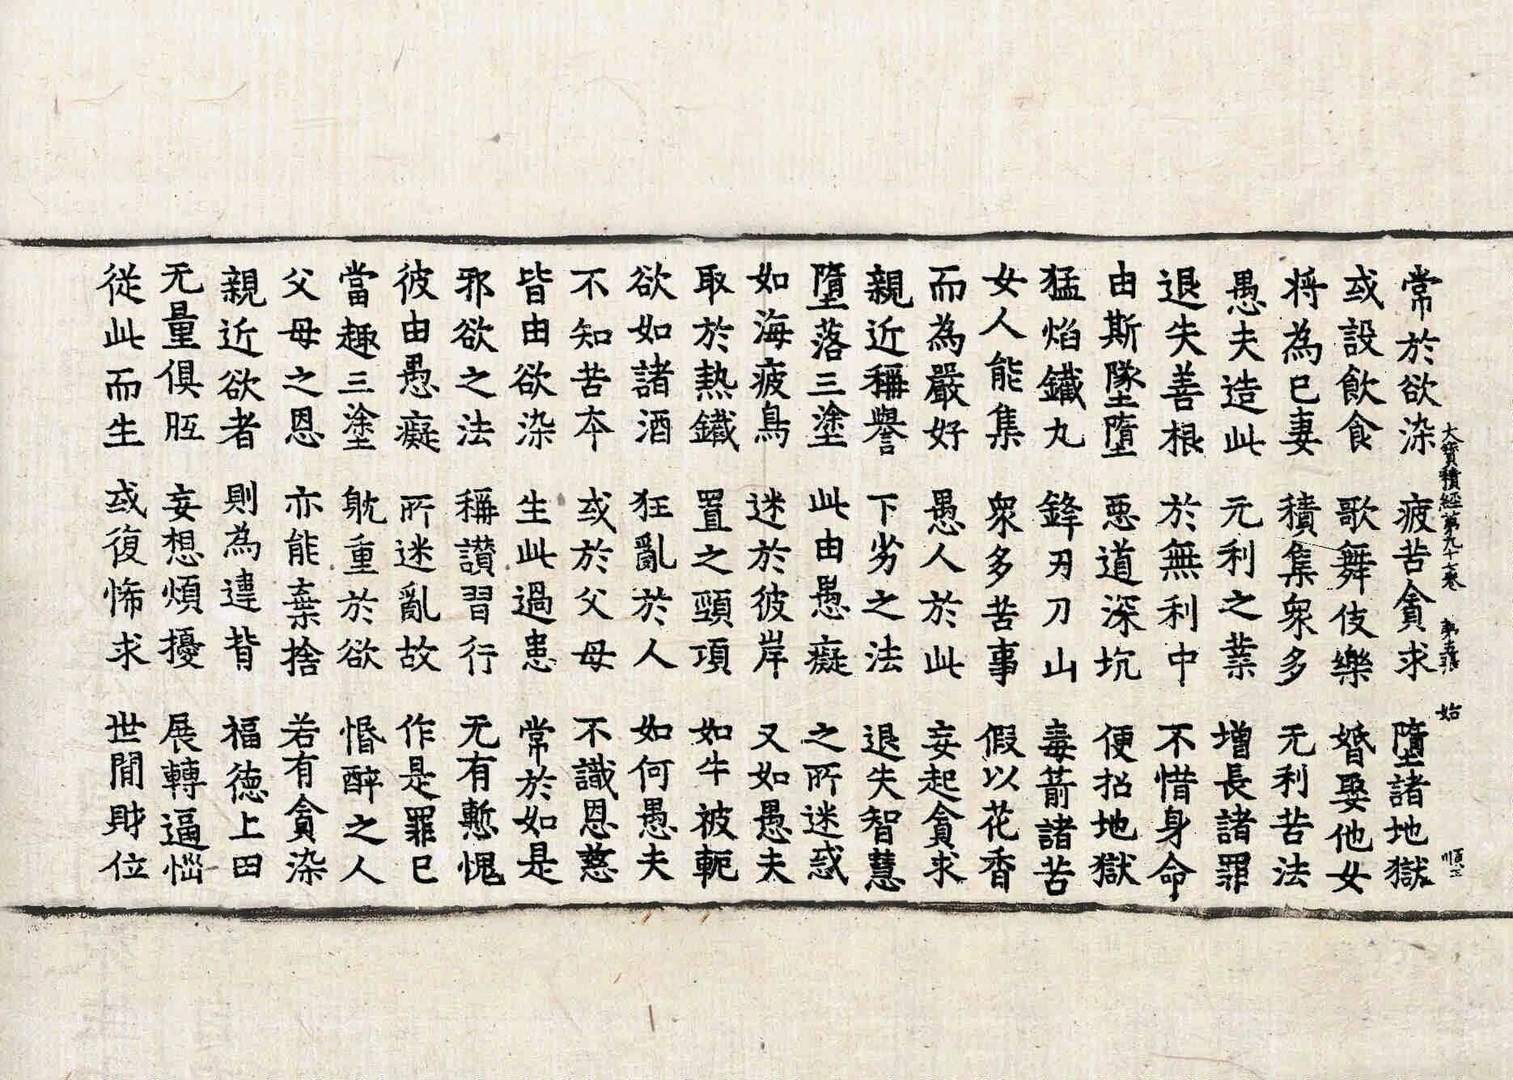 大寳積經第九十七卷 第十五張 始 順三
常於欲染 疲苦貪求 墮諸地獄
或設飲食 歌舞伎樂 婚娶他女
将為已妻 積集衆多 无利苦法
愚夫造此 元利之業 增長諸罪
退失善根 於無利中 不惜身命
由斯墜墮 惡道深坑 便招地獄
猛焰鐵丸 鋒刃刀山 毒箭諸苦
女人能集 衆多苦事 假以花香
而為嚴好 愚人於此 妄起貪求
親近稱譽 下劣之法 退失智慧
墮落三塗 此由愚癡 之所迷惑
如海疲鳥 迷於彼岸 又如愚夫
取於熱鐵 置之頸項 如牛被軛
欲如諸酒 狂亂於人 如何愚夫
不知苦夲 或於父母 不識恩慈
皆由欲染 生此過患 常於如是
邪欲之法 稱讃習行 无有慙愧
彼由愚癡 所迷亂故 作是罪已
當趣三塗 躭重於欲 惛醉之人
父母之恩 亦能棄捨 若有貪染
親近欲者 則為違背 福德上田
无量俱胝 妄想煩擾 展轉逼惱
從此而生 或復怖求 世閒財位